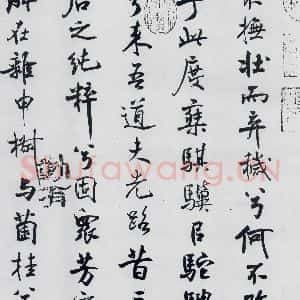 不撫壯而弃穢兮何不改
乎此度椉騏驥㠯駝騁
兮来吾道夫先路昔三
后之純粹兮固眾芳
所在雜申椒与菌桂兮
Shufawang.CN